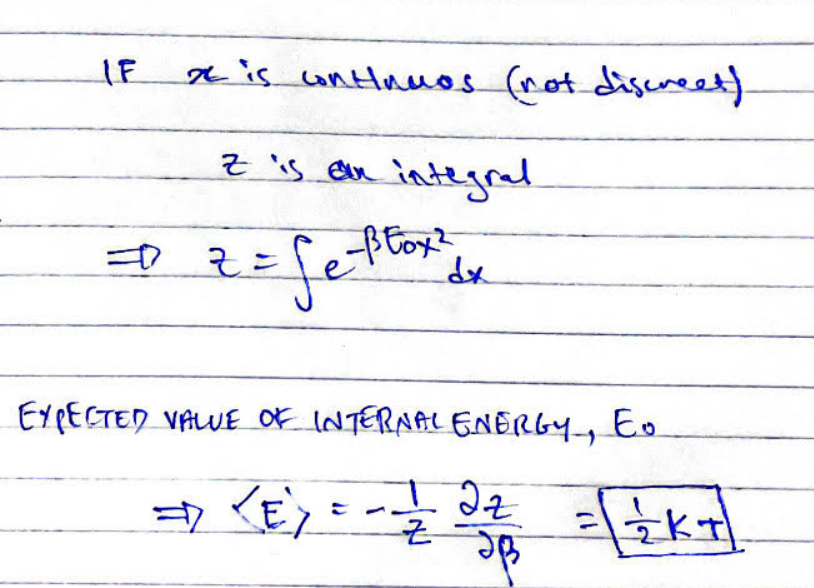 IF x is continuos (not discreet)
z is an integral
⇒ z = ∫ e^{-βE₀x²} dx
EXPECTED VALUE OF INTERNAL ENERGY, E₀
⇒ ⟨E⟩ = -1/z ∂z/∂β = 1/2 KT